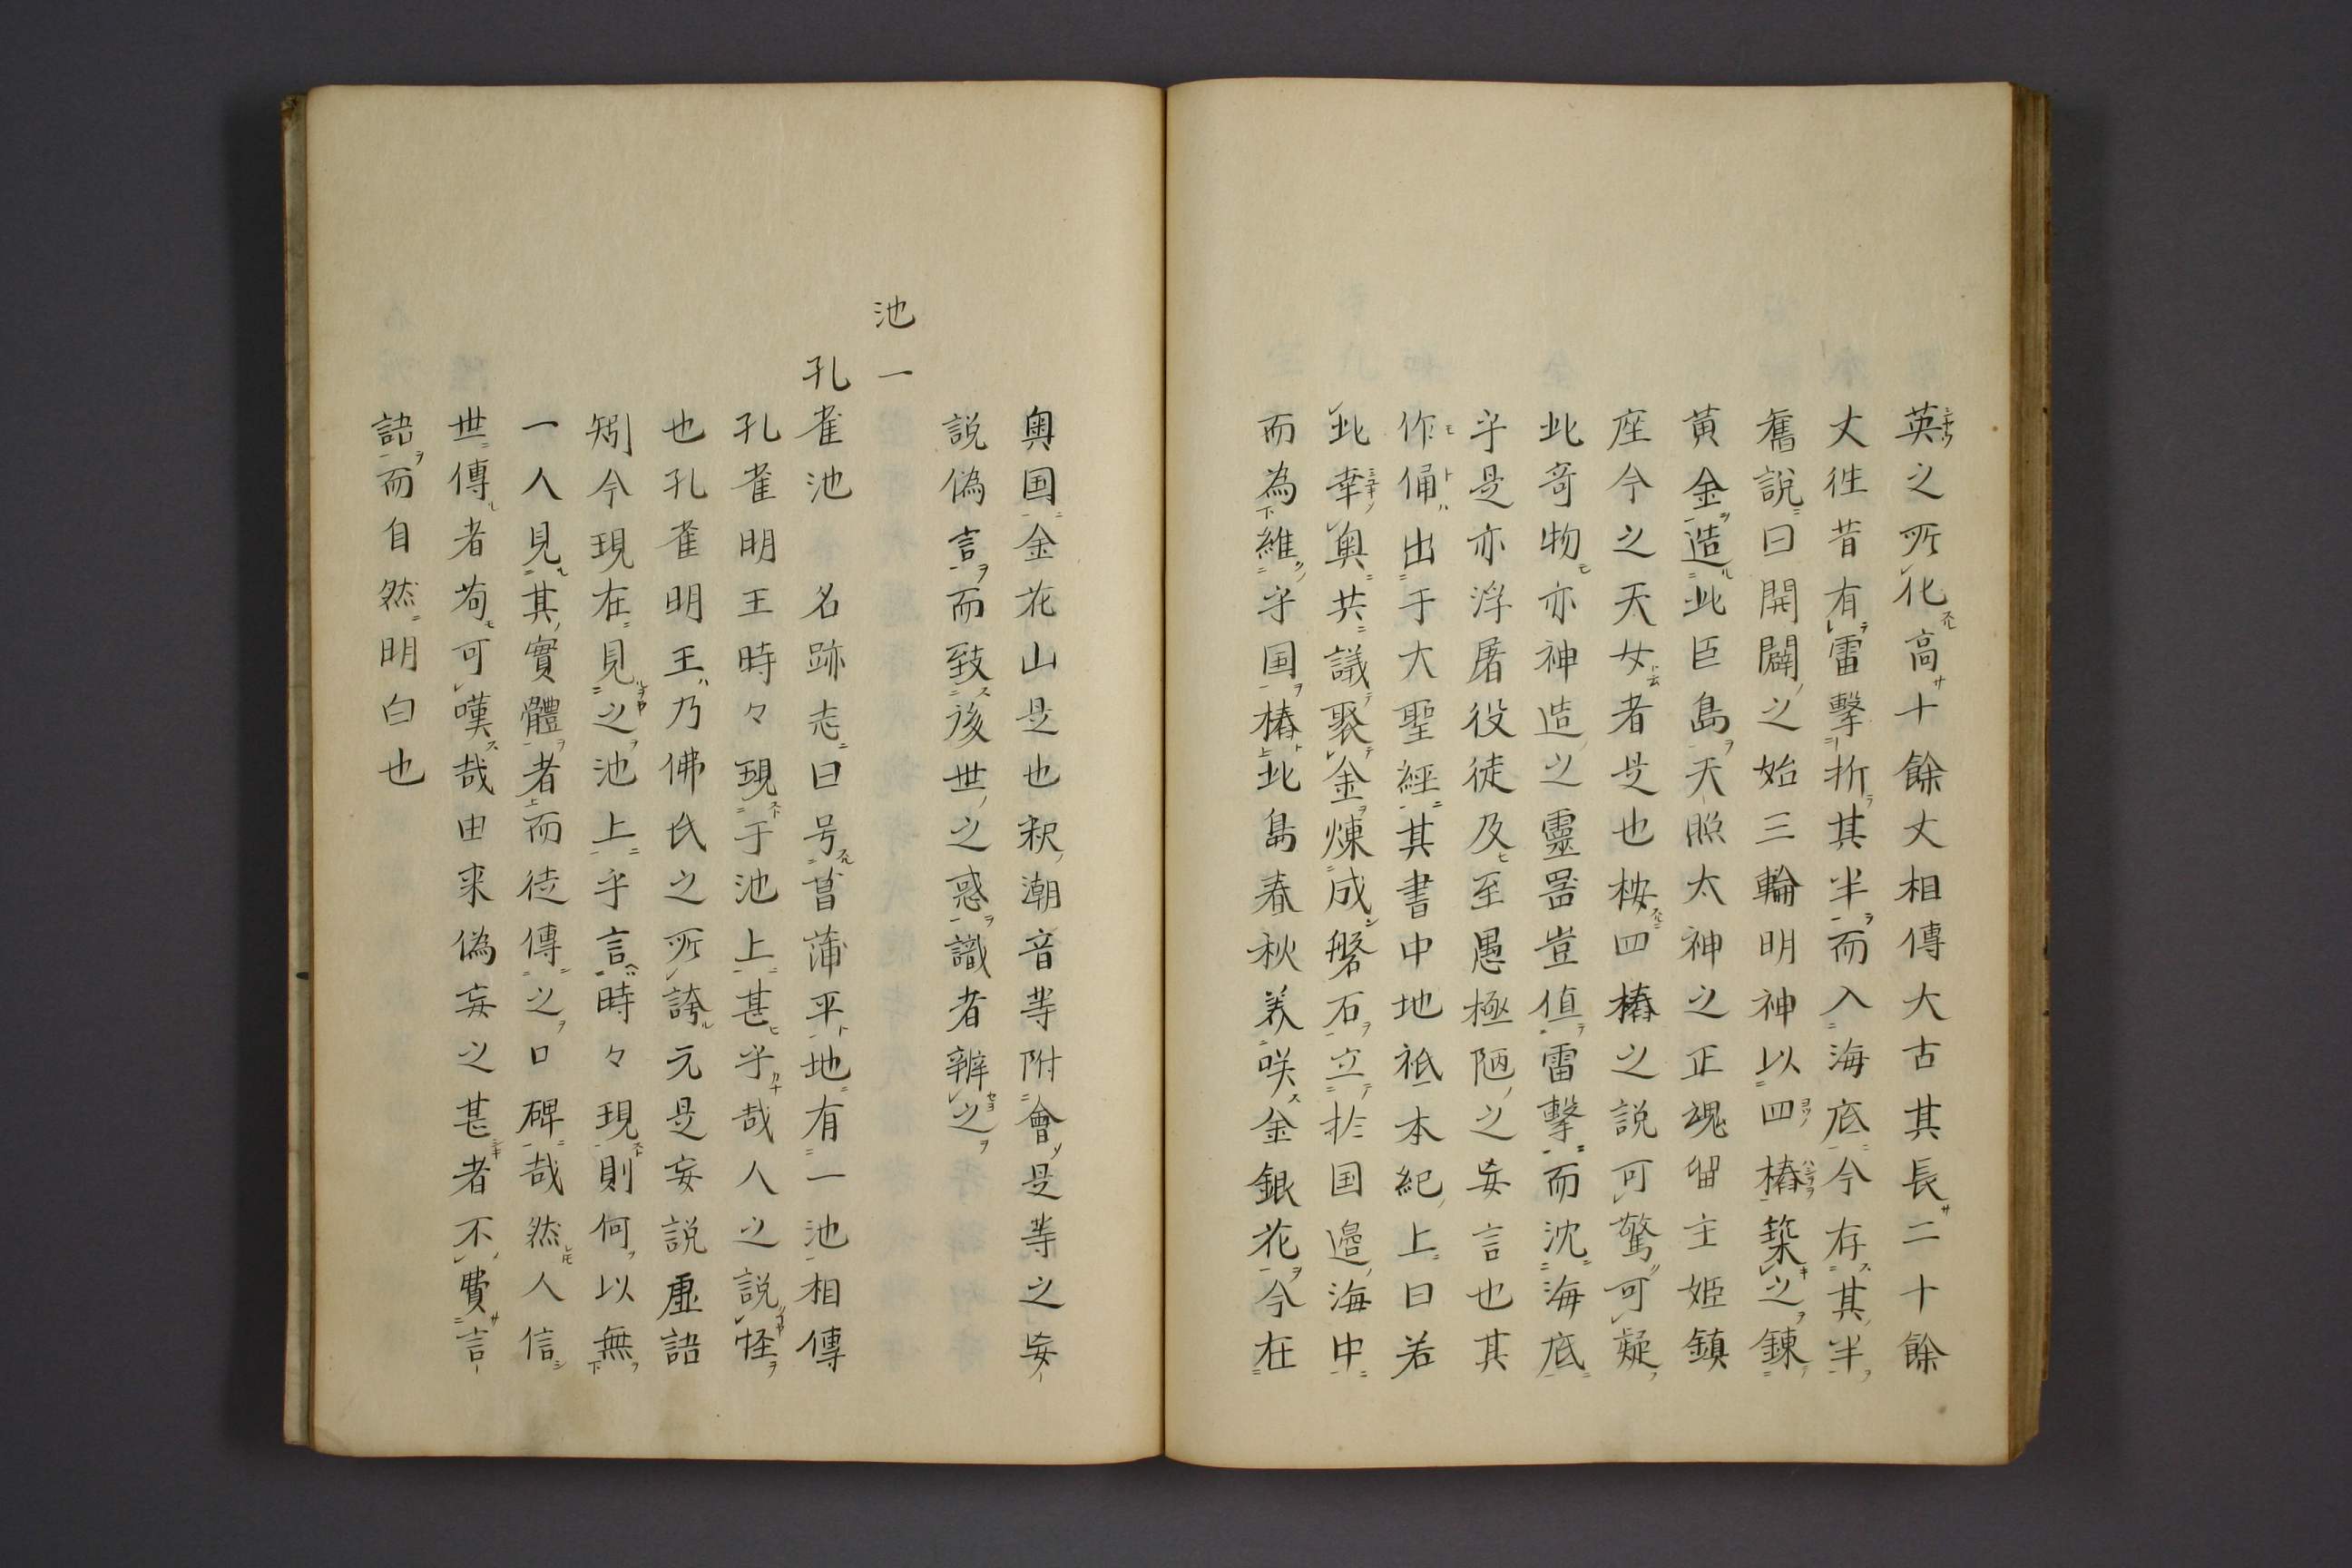 英之所化高十餘丈相傳大古其長二十餘
丈徃昔有雷擊折其半而入海底今存其半
舊說曰開闢之始三輪明神以四樁築之鍊
黄金造此臣島天照太神之正魂留主姫鎮
座今之天女者是也桉四樁之説可驚可疑
此竒物亦神造之靈噐豈值雷擊而沈海底
乎是亦浮屠役徒及至愚極陋之妄言也其
作俑出于大聖經其書中地祇本紀上曰若
此幸奥共議聚金煉成磐石立於国邉海中
而為維乎国樁此島春秋美咲金銀花今在
奥国金花山是也釈潮音等附會是等之妄
説偽言而致後世之惑識者辨之
池一
孔雀池 名跡志曰号菖蒲平地有一池相傳
孔雀明王時々現于池上甚乎哉人之説怪
也孔雀明王乃佛氏之所誇元是妄説虚語
矧今現在見之池上乎言時々現則何以無
一人見其實體者而徒傳之口碑哉然人信
世傳者苟可嘆哉由来偽妄之甚者不費言
語而自然明白也